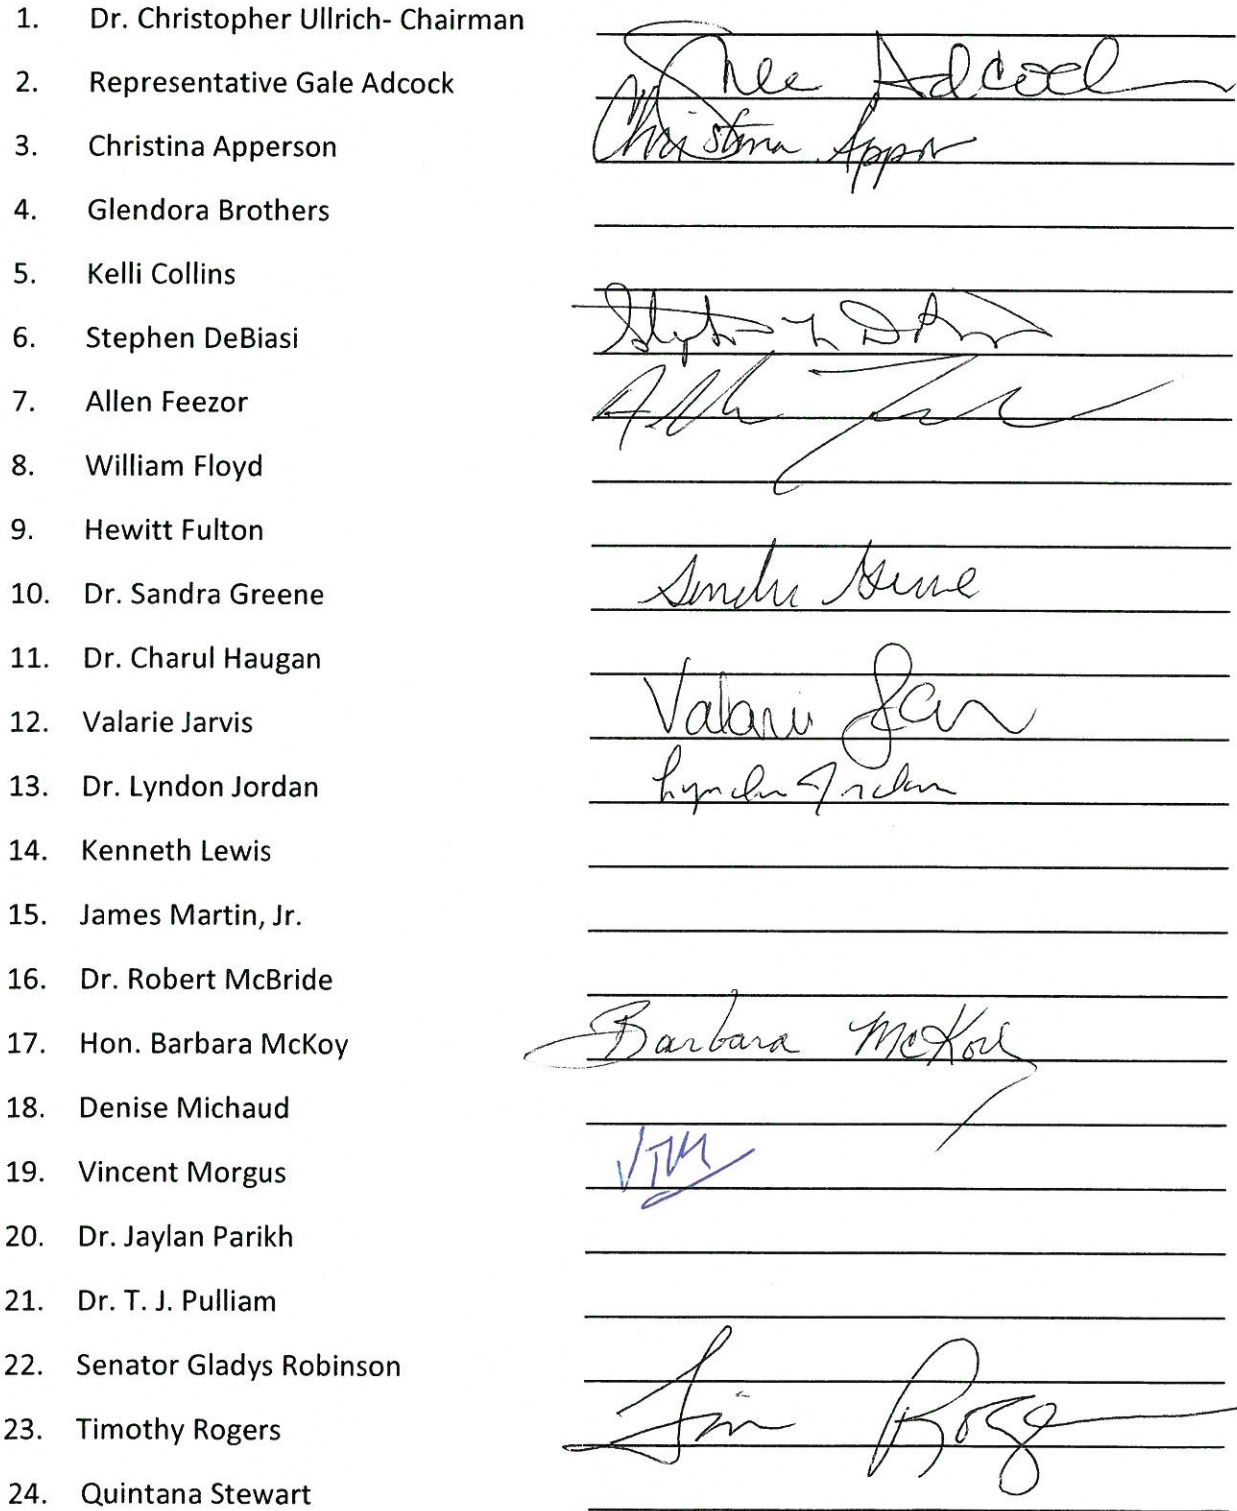 1. Dr. Christopher Ullrich- Chairman
2. Representative Gale Adcock Gale Adcock
3. Christina Apperson Christina Apperson
4. Glendora Brothers
5. Kelli Collins
6. Stephen DeBiasi
7. Allen Feezor
8. William Floyd
9. Hewitt Fulton
10. Dr. Sandra Greene Sandra Greene
11. Dr. Charul Haugan
12. Valarie Jarvis Valarie
13. Dr. Lyndon Jordan Lyndon Jordan
14. Kenneth Lewis
15. James Martin, Jr.
16. Dr. Robert McBride
17. Hon. Barbara McKoy Barbara McKoy
18. Denise Michaud
19. Vincent Morgus VTM
20. Dr. Jaylan Parikh
21. Dr. T. J. Pulliam
22. Senator Gladys Robinson
23. Timothy Rogers Tim Rogers
24. Quintana Stewart